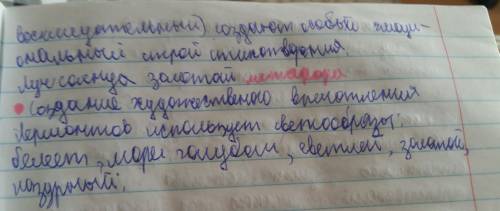 восклицательный) создают особый эмоци-
ональный строй стихотведения
Луч солнца золотой метафора
• Создание художественого впечатления
Лермонтов использует светообразы:
белеет, море голубом, светлей, золотой,
лазурный;